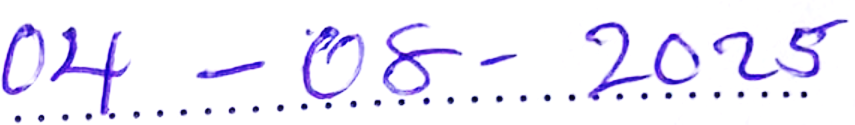 04 - 08 - 2025